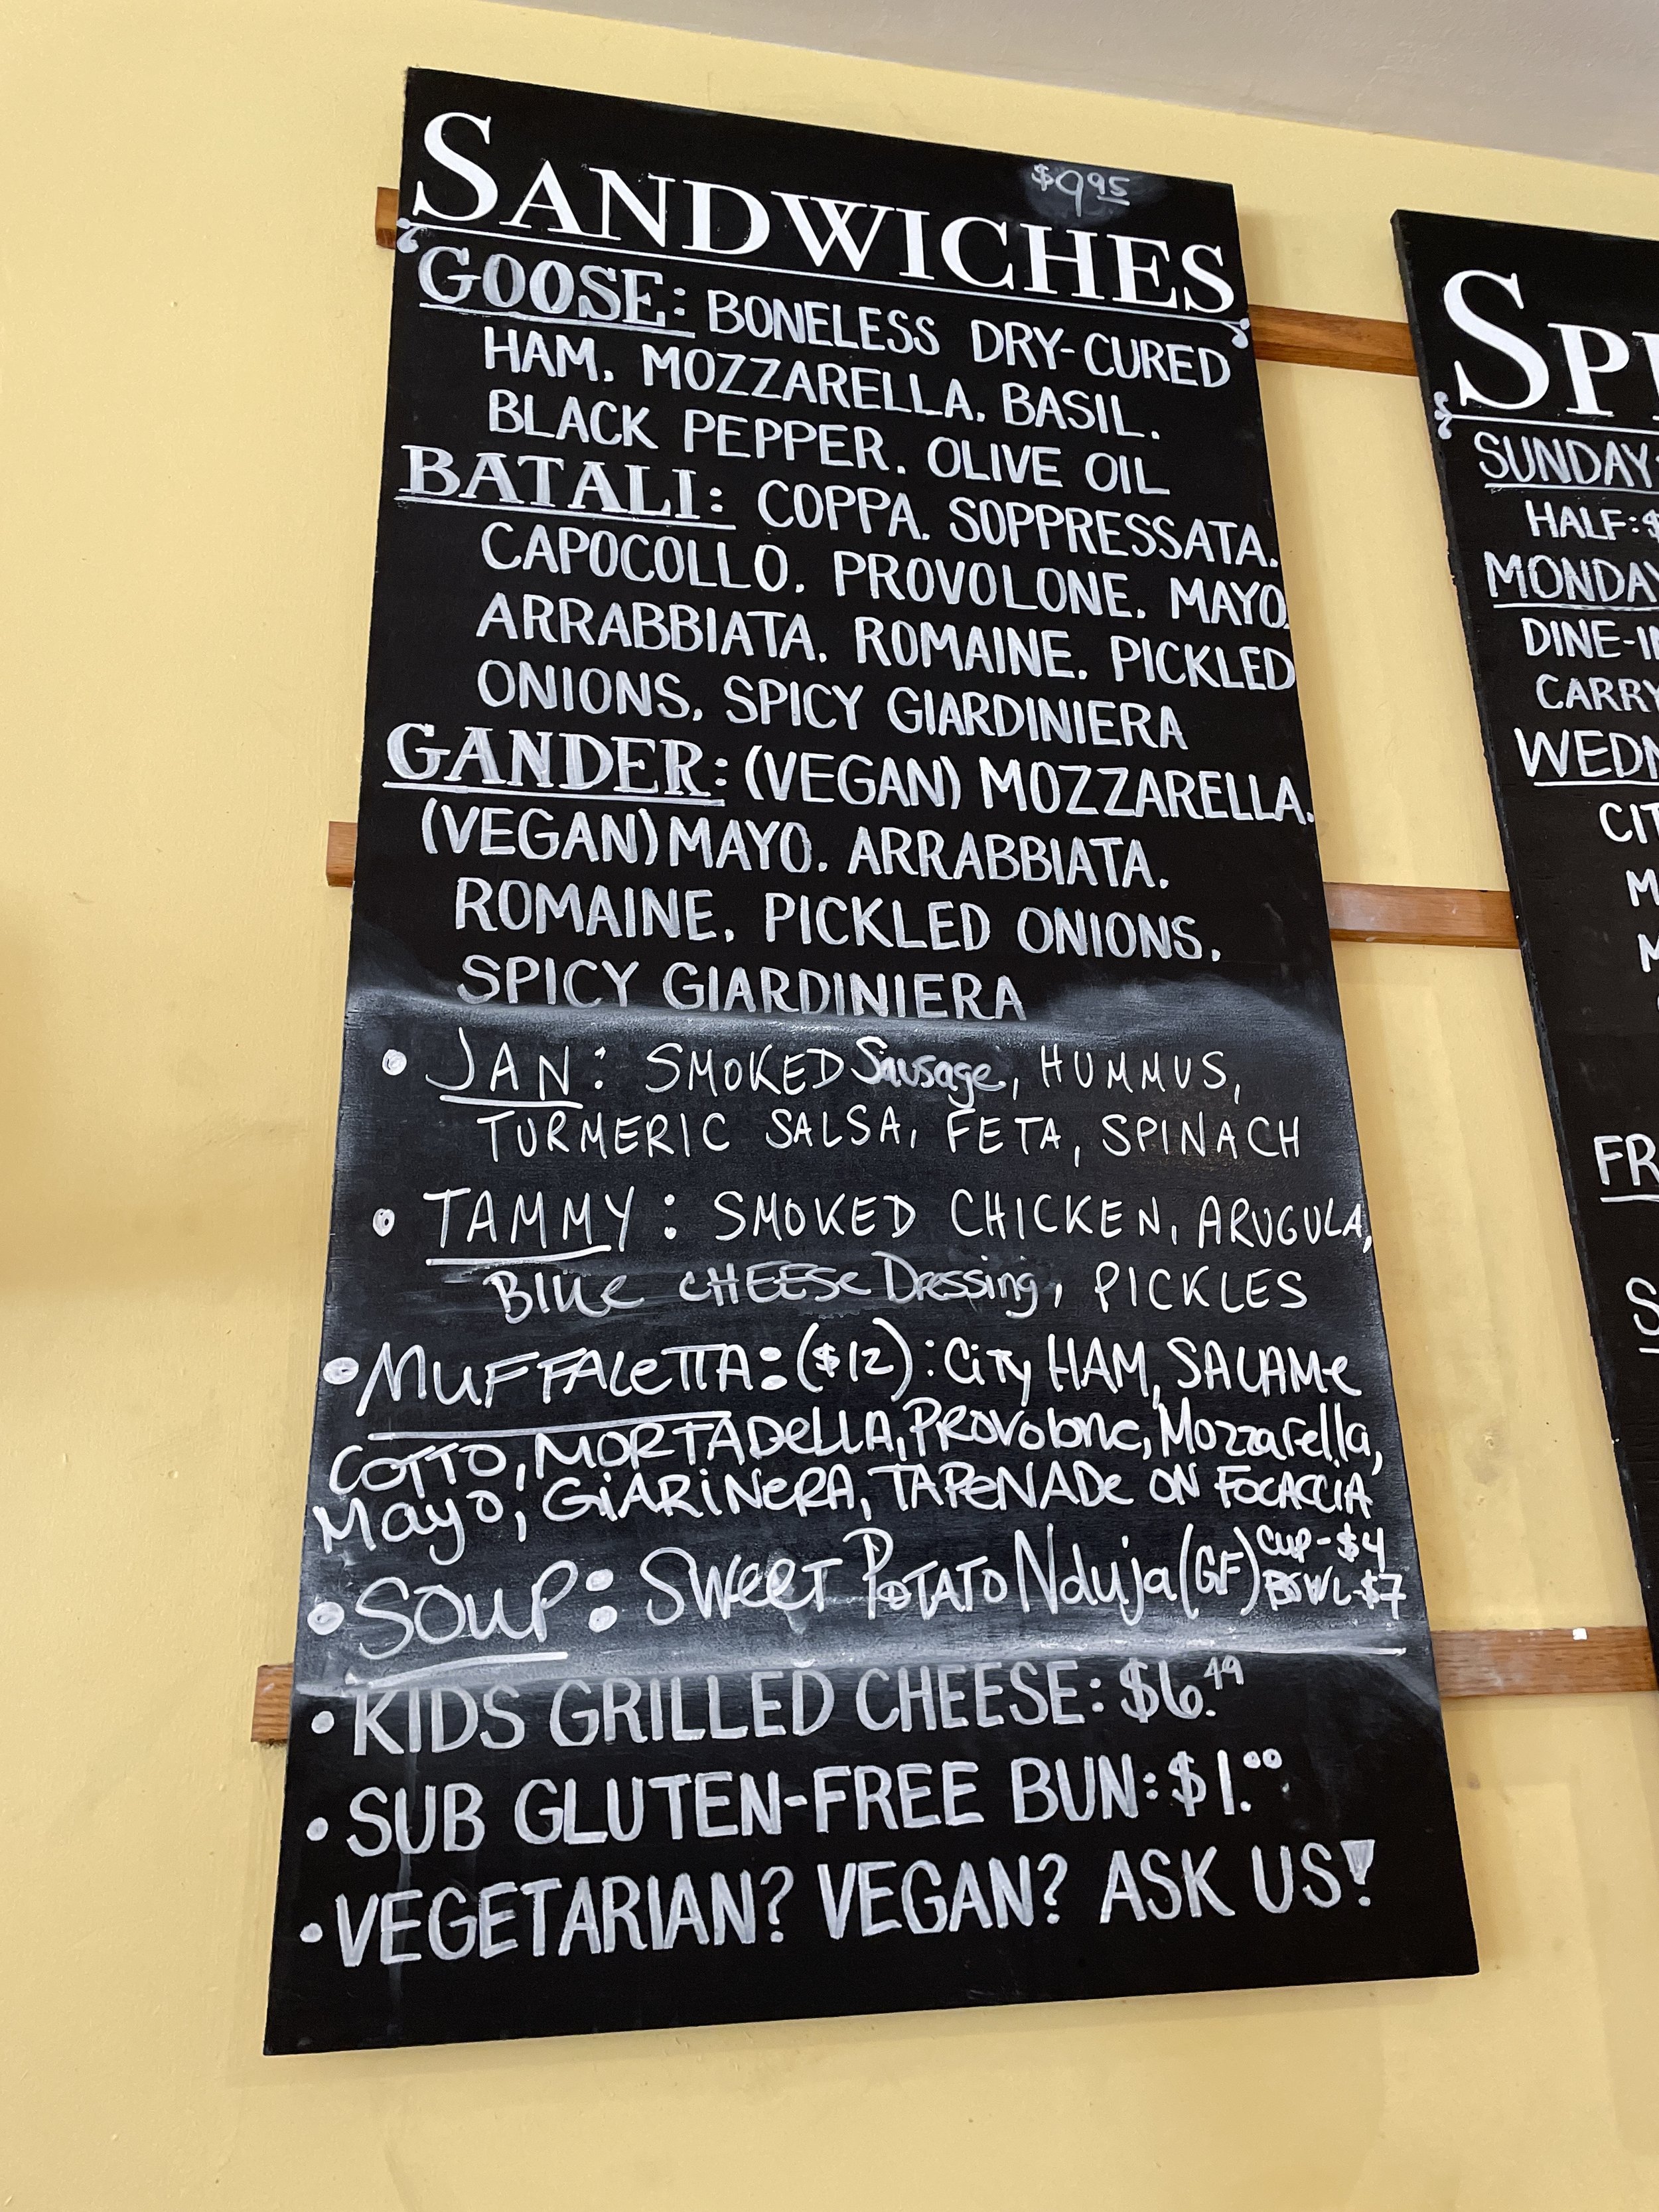 $9.95
SANDWICHES
GOOSE: BONELESS DRY-CURED
HAM, MOZZARELLA, BASIL,
BLACK PEPPER, OLIVE OIL
BATALI: COPPA, SOPPRESSATA,
CAPOCOLLO, PROVOLONE, MAYO,
ARRABBIATA, ROMAINE, PICKLED
ONIONS, SPICY GIARDINIERA
GANDER: (VEGAN) MOZZARELLA,
(VEGAN) MAYO, ARRABBIATA,
ROMAINE, PICKLED ONIONS,
SPICY GIARDINIERA
• JAN: SMOKED Sausage, HUMMUS,
TURMERIC SALSA, FETA, SPINACH
• TAMMY: SMOKED CHICKEN, ARUGULA,
Blue CHEESe Dressing, PICKLES
• MUFFALeTTA: ($12): City HAM, SALAMe
COTTO, MORTADeLLA, PROVolone, Mozzarella,
Mayo, GiARiNeRA, TAPeNADe ON FOCACCiA
• SOUP: SWeeT POTATO Nduja (GF) CUP-$4
BOWL-$7
• KIDS GRILLED CHEESE: $6.49
• SUB GLUTEN-FREE BUN: $1.00
• VEGETARIAN? VEGAN? ASK US!
SUNDAY
HALF: $
MONDAY
DINE-IN
CARRY